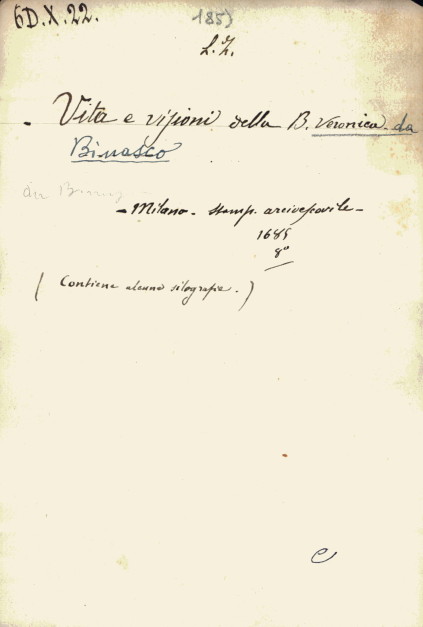 6D.X.22.
185)
L.Z.
- Vita e visioni della B. Veronica da
Binasco
- Milano - stamp. arcivescovile -
1685
8°
(Contiene alcune silografie.)
C